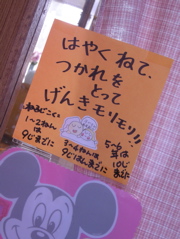 はやくねて、
つかれを
とって
げんきモリモリ!!
1〜2ねん
は
9じまでに
3〜4ねんは
9じはんまでに
5〜6
年は
10じ
までに